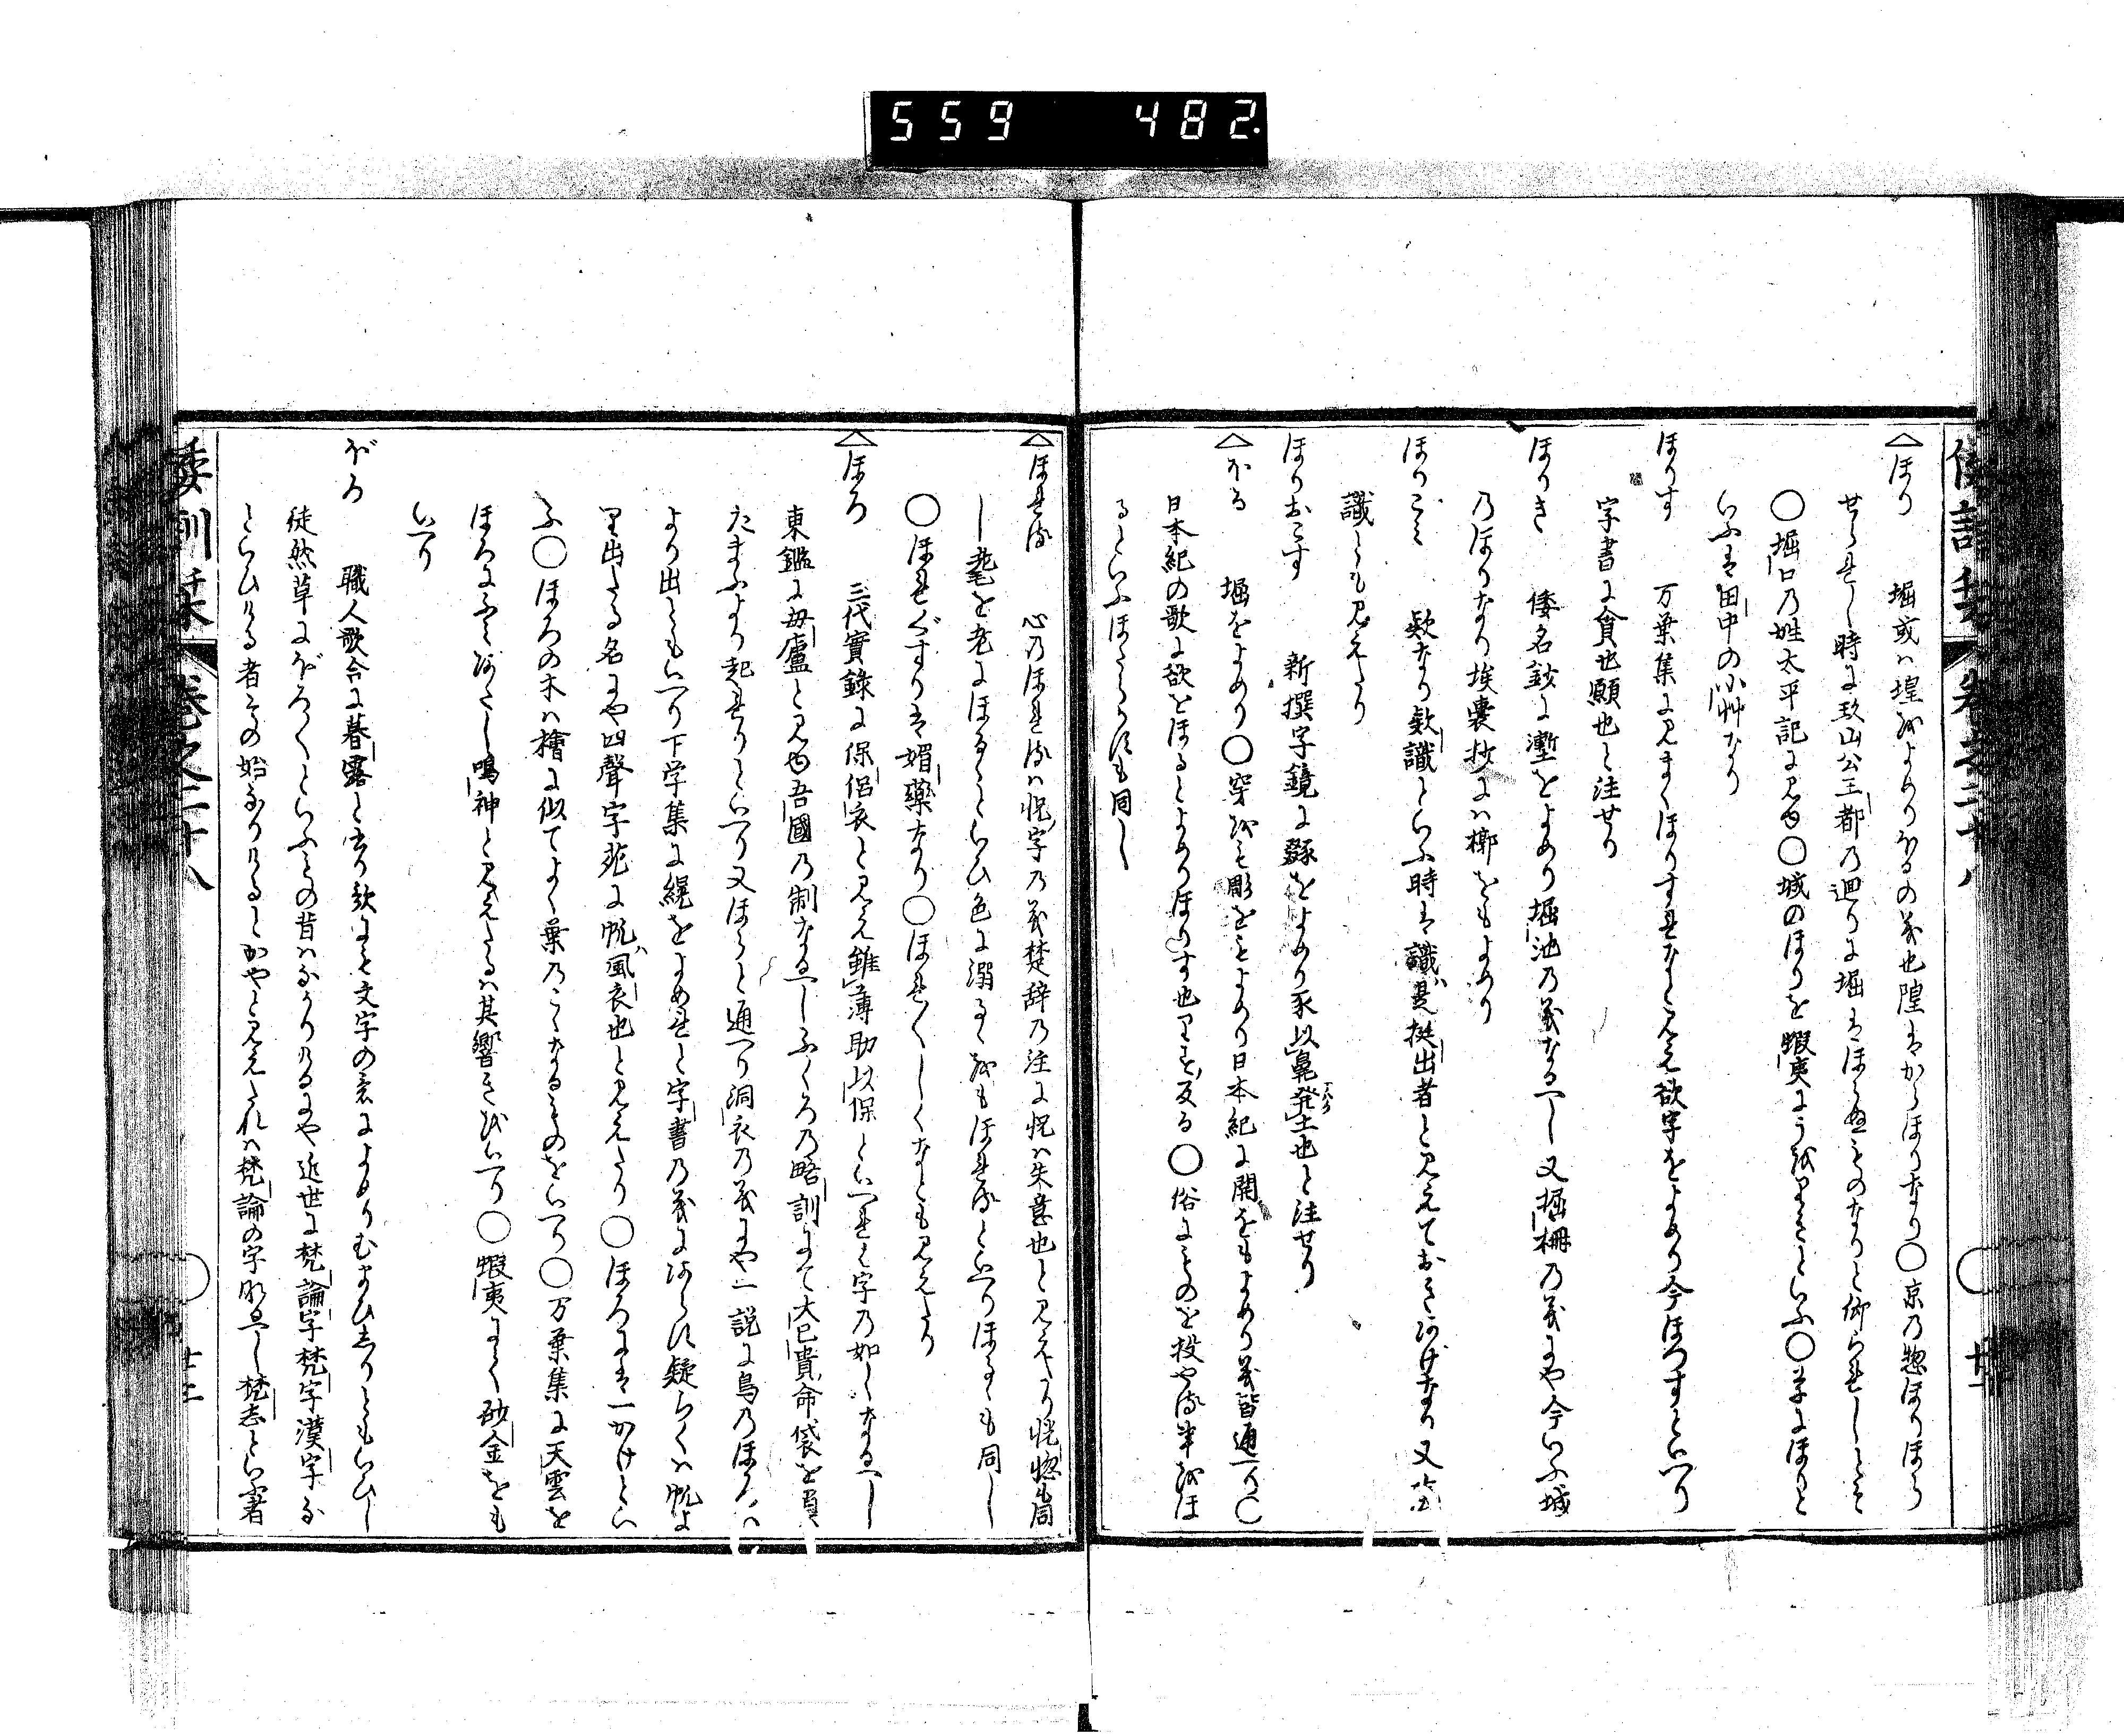 559 482.
倭訓栞 巻之二十八
△ほり 堀或ハ堭をよめりほるの義也隍はからほりなり○京乃惣ほりほら
せられし時に玖山公王都乃廻りに堀はほらぬものなりと仰られしとそ
○堀口乃姓太平記に見ゆ○城のほりを蝦夷にうをりといふ○草にほりと
いふは田中の小艸なり
ほりす 万葉集に見まくほりすれなと見え欲字をよめり今ほつすといへり
字書に貪也願也と注せり
ほりき 倭名鈔に塹をよめり堀池乃義なるへし又堀柵乃義にや今いふ城
乃ほりなり埃嚢抄にハ槨をもよめり
ほりこミ 欵なり欵識といふ時は識ハ是挺出者と見えておきあげなり又
識とも見えたり
ほりおこす 新撰字鏡に豥をよめり豕以鼻発土也と注せり
△ほる 堀をよめり○穿をも彫をもよめり日本紀に開をもよめり義皆通へり○
日本紀の歌に欲をほるとよめりほりす也りを反る○俗にものを投やる事をほ
るといふほうるも同し
△ほれる 心乃ほれるハ怳字乃義楚辞乃注に怳ハ失意也と見えたり恍惚も同
し耄を老にほるゝといひ色に溺るゝをもほれるといへりほるゝも同し
○ほれぐすりは媚藥なり○ほれ〳〵しくなとも見えたり
△ほろ 三代實錄に保侶衣と見え雖薄助以保といへれは字乃如くなるへし
東鑑に毋廬と見ゆ吾國乃制なるへしふくろ乃略訓にて大已貴命袋を負
たまふより起れりといへり又ほらと通へり洞衣乃義にや一説に鳥乃ほろハ
より出ともいへり下学集に縨をよめれと字書乃義にあらす疑らくハ帆よ
り出たる名にや四聲字苑に帆ハ風衣也と見えたり○ほろには一かけとい
ふ○ほろの木ハ檜に似てよく葉乃こまなるものをいへり○万葉集に天雲を
ほろにふミあたし鳴神と見えたるハ其響きをいへり○蝦夷にて砂金をも
いへり
ぼろ 職人歌合に暮露と書り歌にも文字の音によめりむまひしりともいひし
徒然草にぼろ〳〵といふもの昔ハなかりけるにや近世に梵論字梵字漢字な
といひける者その始なりけるとかやと見えたれハ梵論の字なるへし梵志といふ者
倭訓栞 巻之二十八